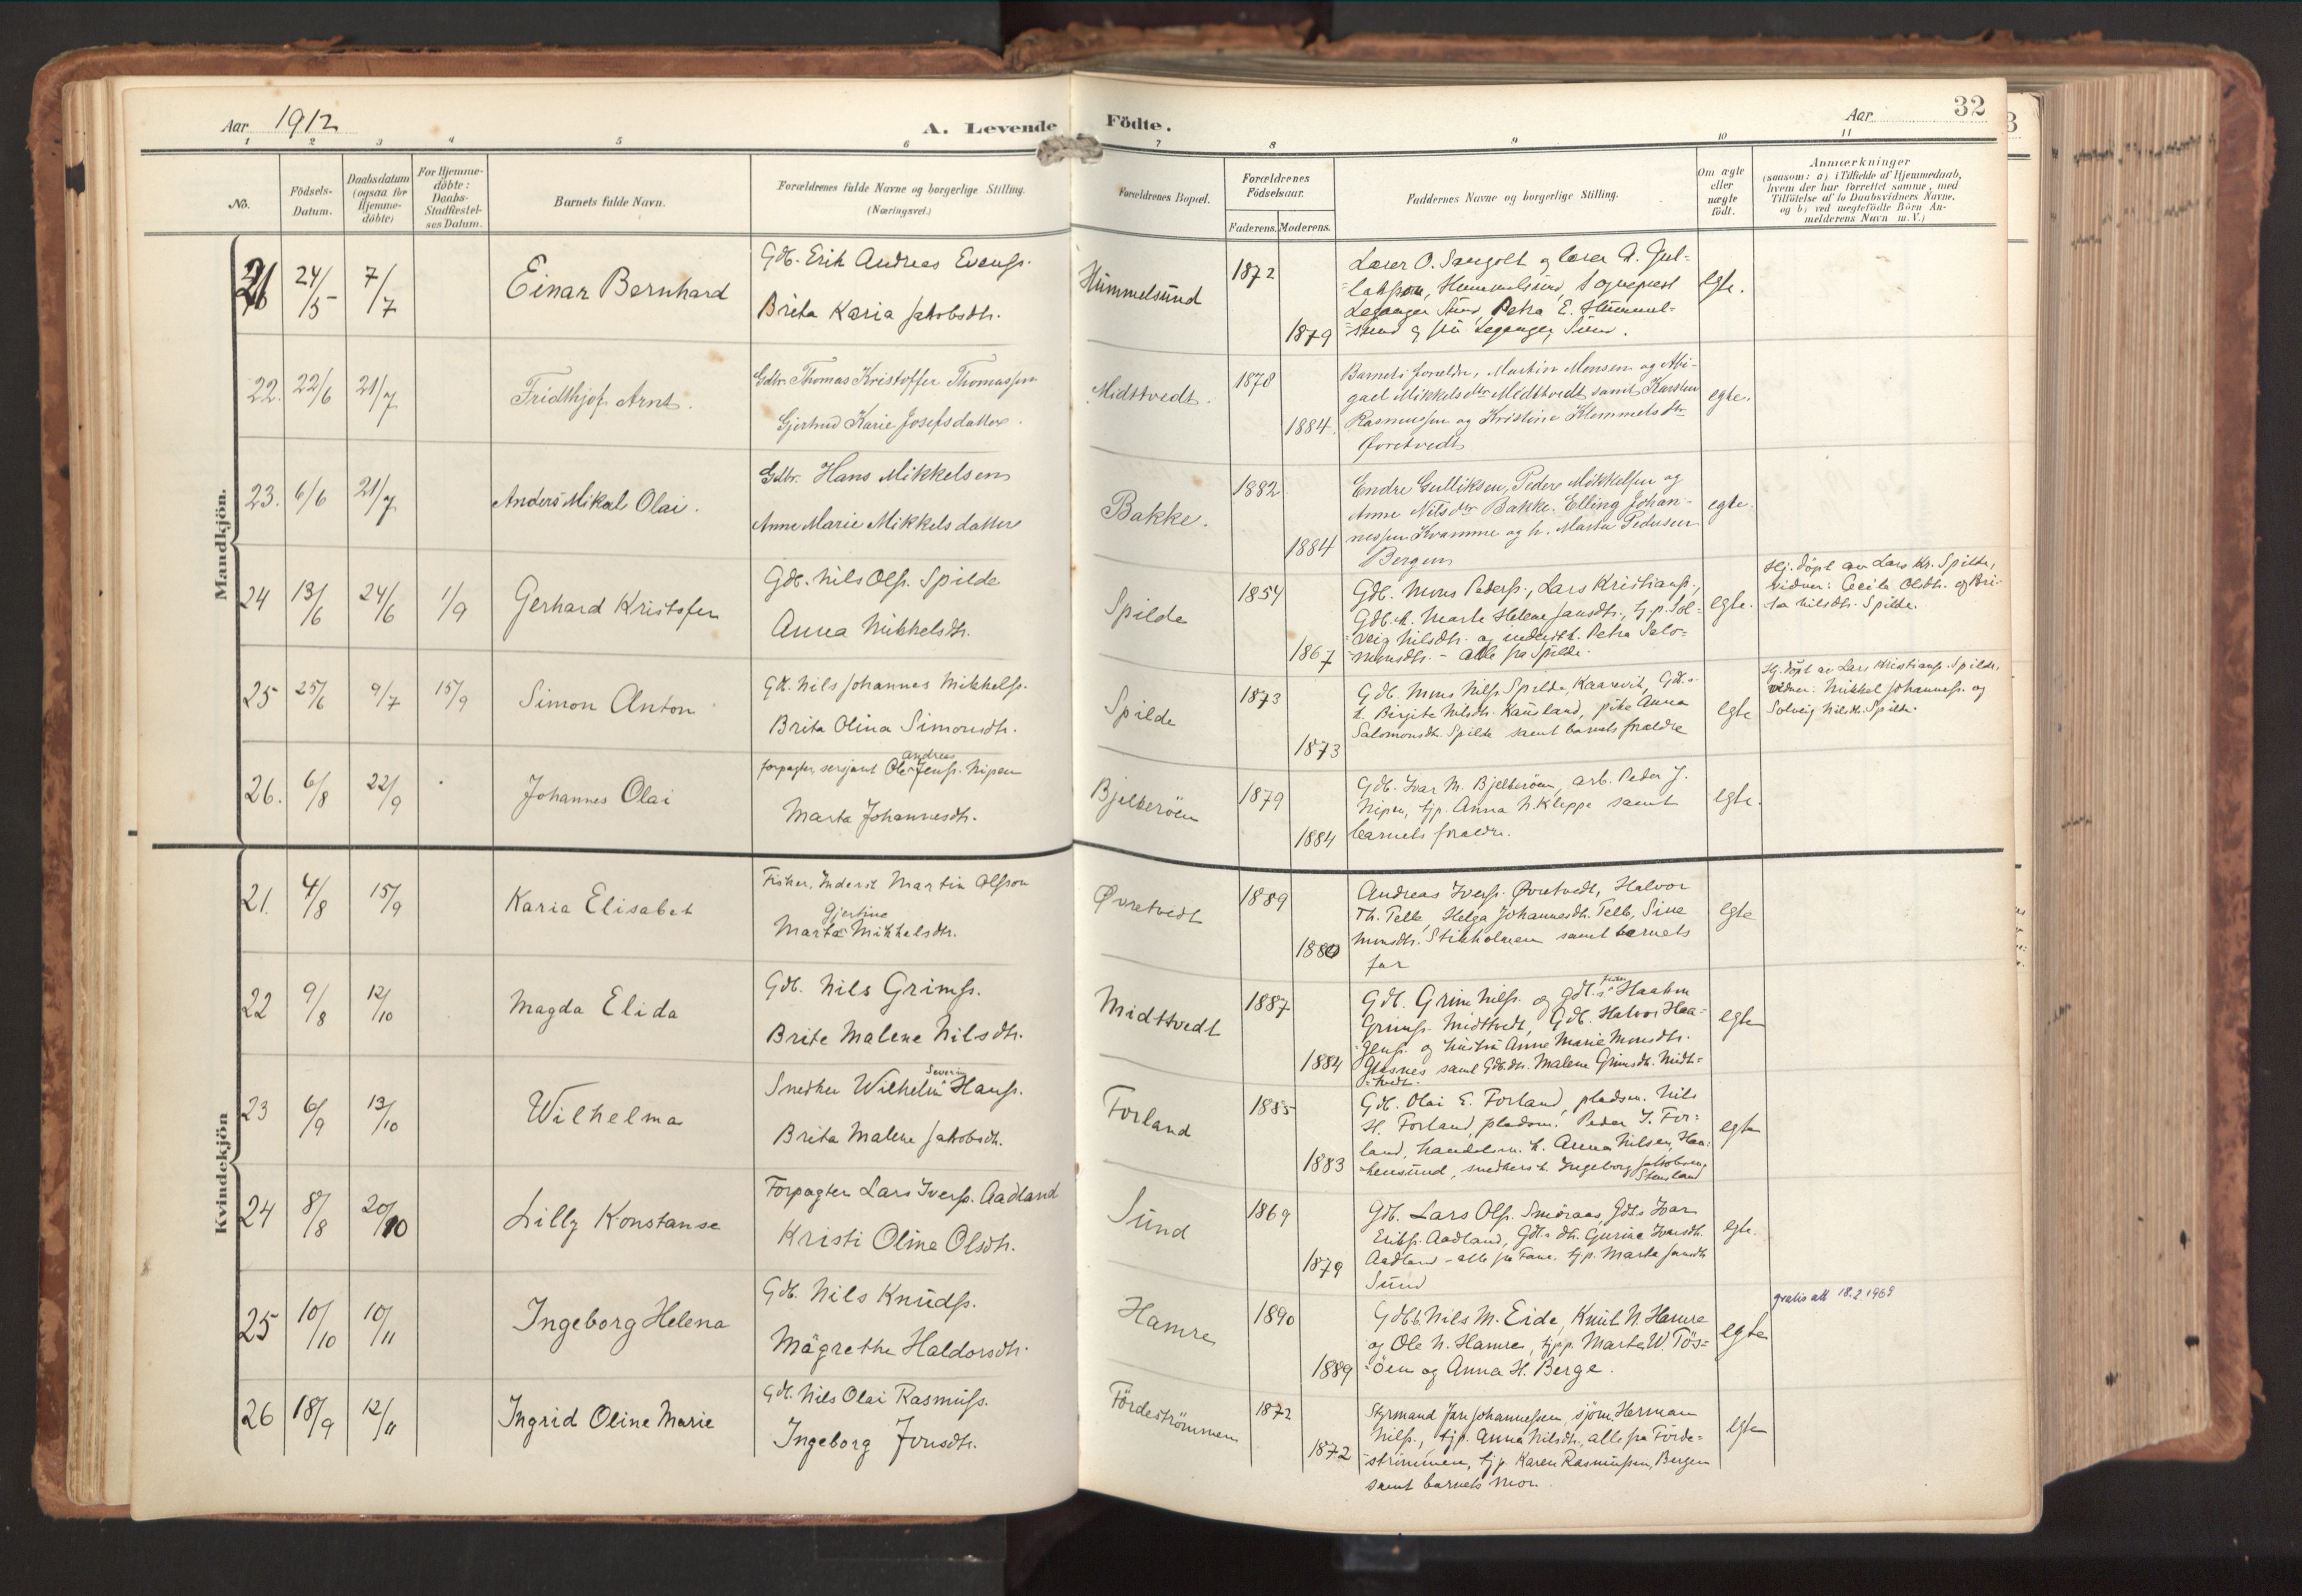 Aar 1912
A. Levende
Födte.
Aar
32
1 2 3 4 5 6 7 8 9 10 11
No.
Födsels-
Datum.
Daabsdatum
(ogsaa for
Hjemme-
döbte)
For Hjemme-
döbte:
Daabs-
Stadfestel-
ses Datum.
Barnets fulde Navn.
Forældrenes fulde Navne og borgerlige Stilling.
(Næringsvei.)
Forældrenes Bopæl.
Forældrenes
Födselsaar.
Faderens. Moderens.
Faddernes Navne og borgerlige Stilling.
Om ægte
eller
uægte
födt.
Anmærkninger
(saasom: a) i Tilfælde af Hjemmedaab,
hvem der har forrettet samme, med
Tilföielse af to Daabsvidners Navne.
og b) ved uægtefödte Börn An-
melderens Navn m. V.)
Mandkjön.
21 24/5 7/7 Einar Bernhard
Gdb. Erik Andreas Evenss.
Brita Karia Jakobsdtr.
Hummelsund
1872
1879
Læser O. Sangolt og læser A. Gul-
laksson, Hummelsund, Sogneprest
Leganger Sund, Petra E. Hummel-
sund og fru Leganger, Sund.
egte.
22. 22/6 21/7 Fridthjof Arnt.
Gdbr. Thomas Kristoffer Thomassen
Gjertrud Karie Josefsdatter.
Midttvedt.
1878
1884.
Barnets forældre, Martin Monsen og Abi-
gael Mikkelsdtr Midttvedt samt Karsten
Rasmussen og Kristine Klemmetsdtr
Øvretvedt
egte.
23. 6/6 21/7 Anders Mikal Olai.
Gdbr. Hans Mikkelsen
Anne Marie Mikkelsdatter
Bakke.
1882
1884
Endre Gulliksen, Peder Mikkelsen og
Anne Nilsdtr Bakke. Elling Johan-
nessen Kvamme og h. Marta Pedersen
Bergen
egte.
24 13/6 24/6 1/9 Gerhard Kristofer
Gdb. Nils Olss. Spilde
Anna Mikkelsdtr.
Spilde
1854
1867
Gdb. Mons Pederss., Lars Kristianss.,
Gdb. h. Marta Helene Jansdtr., tj.p. Sol-
veig Nilsdtr. og inderst. Petra Salo-
monsdtr. - alle fra Spilde.
egte.
Hj. döpt av Lars Kr. Spilde,
vidner: Cecilie Olsdtr. og Bri-
ta Nilsdtr. Spilde.
25 25/6 9/7 15/9 Simon Anton
Gdb. Nils Johannes Mikkelss.
Brita Olina Simonsdtr.
Spilde
1873
1873
Gdb. Mons Nilss. Spilde, Kaarevik, Gdb.s
h. Birgite Nilsdtr. Kausland, pike Anna
Salomonsdtr. Spilde samt barnets foræeldre
egte
Hj. döpt av Lars Kristianss. Spilde,
vidner: Mikkel Johanness. og
Solveig Nilsdtr. Spilde.
26. 6/8 22/9 Johannes Olai
Andreas
forpagter, sersjant Ole Jenss. Nipen
Marta Johannesdtr.
Bjelkeröen
1879
1884
Gdb. Ivar M. Bjelkeröen, arb. Peder J.
Nipen, tjp. Anna N. Kleppe samt
barnets foræeldre.
egte.
Kvindekjön
21. 4/8 15/9 Karia Elisabet
Fisker, Inderst Martin Olsson
Gjertine
Marta Mikkelsdtr.
Øvretvedt
1889
1880
Andreas Iverss. Øvretvedt, Halvor
Th. Telle, Helga Johannesdtr. Telle, Sine
Monsdtr. Stikholmen samt barnets
far
egte
22 9/8 12/10 Magda Elida
Gdb. Nils Grimss.
Brite Malene Nilsdtr.
Midttvedt
1887
1884
Gdb. Grim Nilss. og Gdb.s Haakon
Grimss. Midttvedt, Gdb. Halvor Haa-
genss. og hustru Anne Marie Monsdtr.
Glesnes samt Gdb.dtr. Malene Grimsdtr. Midt-
tvedt.
egte
23 6/9 13/10 Wilhelma
Severin
Snedker Wilhelm Hanss.
Brita Malene Jakobsdtr.
Forland
1885
1883
Gdb. Olai E. Forland, pladsm. Nils
H. Forland, pladsm. Peder J. For-
land, handelsm. h. Anna Nilsen, Haa-
kensund, snedkers h. Ingeborg Jakobsen,
Stensland
egte
24 8/8 20/10 Lilly Konstanse
Forpagter Lars Iverss. Aadland
Kristi Oline Olsdtr.
Sund
1869
1879
Gdb. Lars Olss. Smöraas, Gdb.s Ivar
Erikss. Aadland, Gdb.s dtr. Gurine Ivarsdtr.
Aadland - alle fra Fane, tjp. Marta Jansdtr.
Sund
egte.
25 10/10 10/11 Ingeborg Helena
Gdb. Nils Knudss.
Magrethe Haldorsdtr.
Hamre
1890
1889
Gdbb. Nils M. Eide, Knut N. Hamre
og Ole N. Hamre, tjpp. Marta W. Tös-
öen og Anna H. Berge.
egte
gratis att 18.2.1969
26 18/9 12/11 Ingrid Oline Marie
Gdb. Nils Olai Rasmuss.
Ingeborg Jonsdtr.
Fördeströmmen
1872
1872
Styrmand Jan Johannessen, sjöm. Herman
Nilss., tjp. Anna Nilsdtr., alle fra Förde-
strömmen, tjp. Karen Rasmussen, Bergen
samt barnets mor.
egte